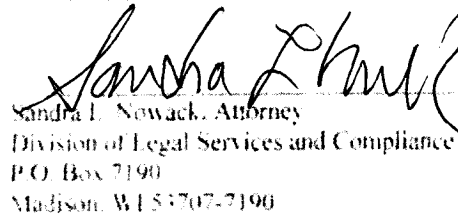 Sandra L Nowack
Sandra L. Nowack, Attorney
Division of Legal Services and Compliance
P.O. Box 7190
Madison, WI 53707-7190